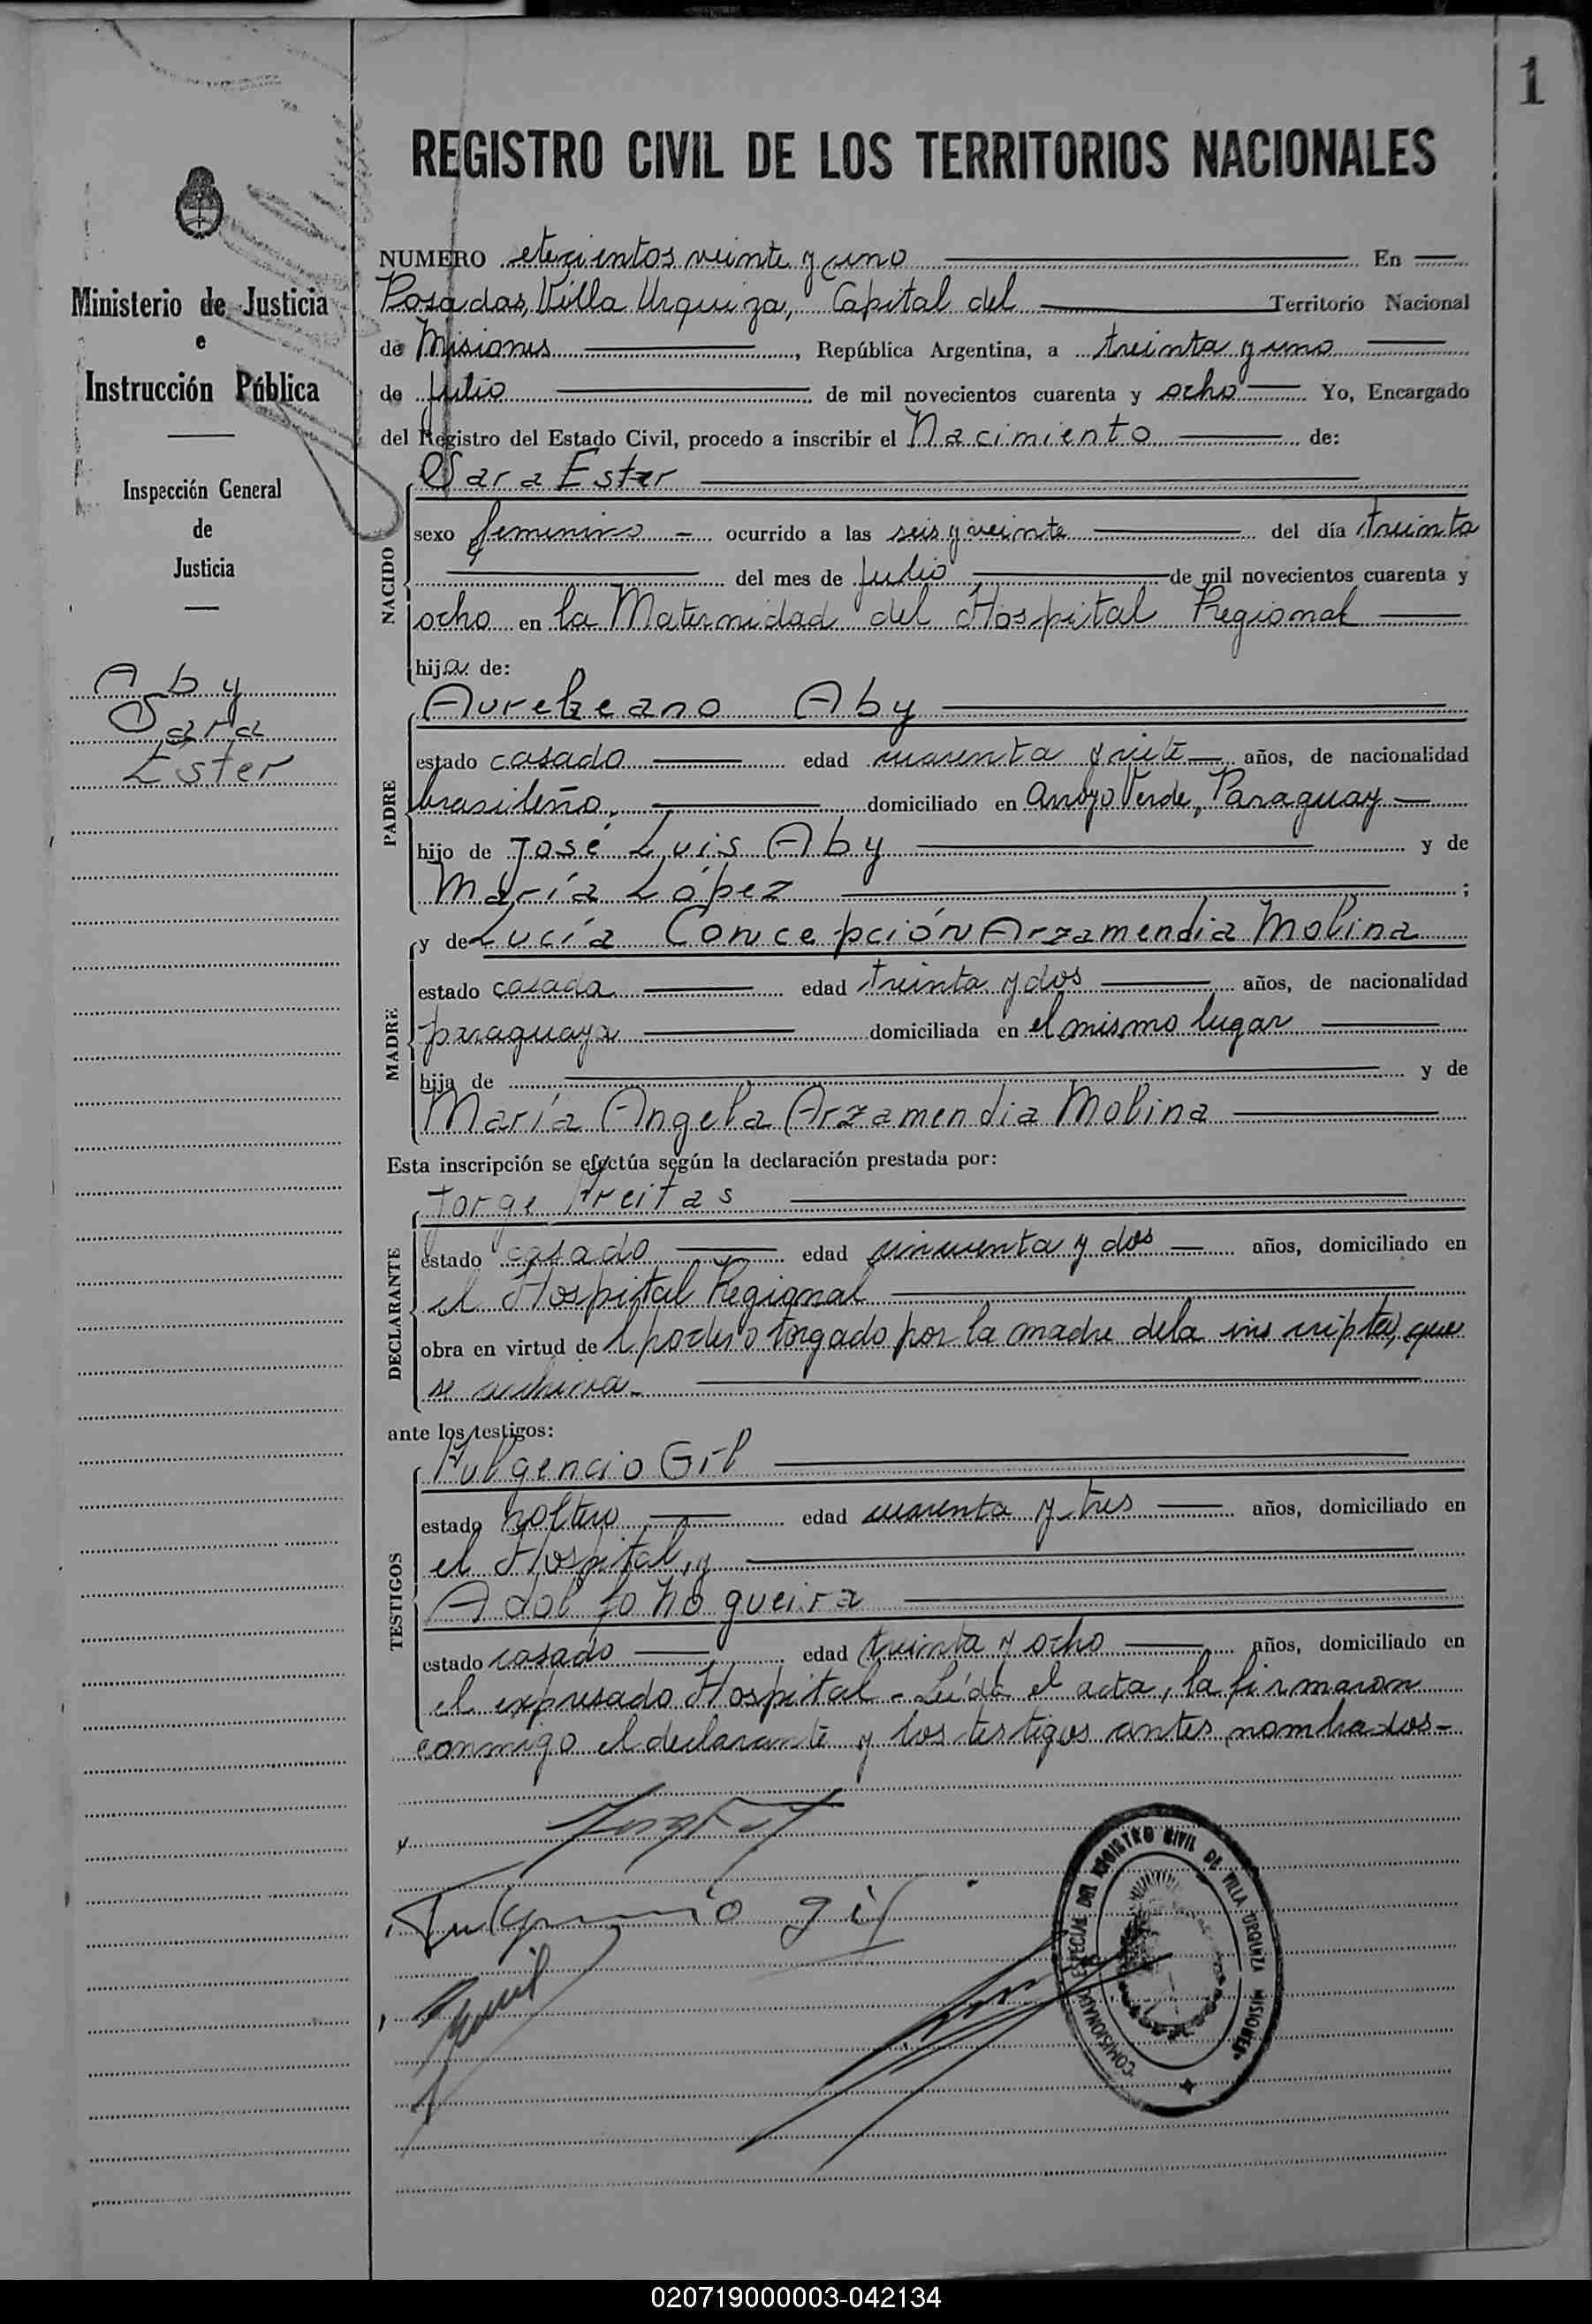 1
REGISTRO CIVIL DE LOS TERRITORIOS NACIONALES
Ministerio de Justicia
e
Instrucción Pública
Inspección General
de
Justicia
Aby
Sara
Ester
NUMERO etecientos veinte y uno En
Posadas, Villa Urquiza, Capital del Territorio Nacional
de Misiones, República Argentina, a treinta y uno
de Julio de mil novecientos cuarenta y ocho Yo, Encargado
del Registro del Estado Civil, procedo a inscribir el Nacimiento de:
Sara Ester
NACIDO
sexo femenino - ocurrido a las seis y veinte del día treinta
del mes de Julio de mil novecientos cuarenta y
ocho en la Maternidad del Hospital Regional
hija de:
Aureliano Aby
PADRE
estado casado edad cuarenta y siete años, de nacionalidad
brasileño, domiciliado en Arroyo Verde, Paraguay
hijo de José Luis Aby y de
María López ;
y de Lucía Concepción Arzamendia Molina
MADRE
estado casada edad treinta y dos años, de nacionalidad
paraguaya domiciliada en el mismo lugar
hija de y de
María Angela Arzamendia Molina
Esta inscripción se efectúa según la declaración prestada por:
Jorge Freitas
DECLARANTE
estado casado edad cincuenta y dos años, domiciliado en
el Hospital Regional
obra en virtud del poder otorgado por la madre de la inscripta, que
se archiva.
ante los testigos:
Fulgencio Gil
TESTIGOS
estado soltero edad cuarenta y tres años, domiciliado en
el Hospital, y
Adolfo Nogueira
estado casado edad treinta y ocho años, domiciliado en
el expresado Hospital - Leída el acta, la firmaron
conmigo el declarante y los testigos antes nombrados-
Fulgencio Gil
COMISIONADO ESPECIAL DEL REGISTRO CIVIL DE VILLA URQUIZA MISIONES
020719000003-042134